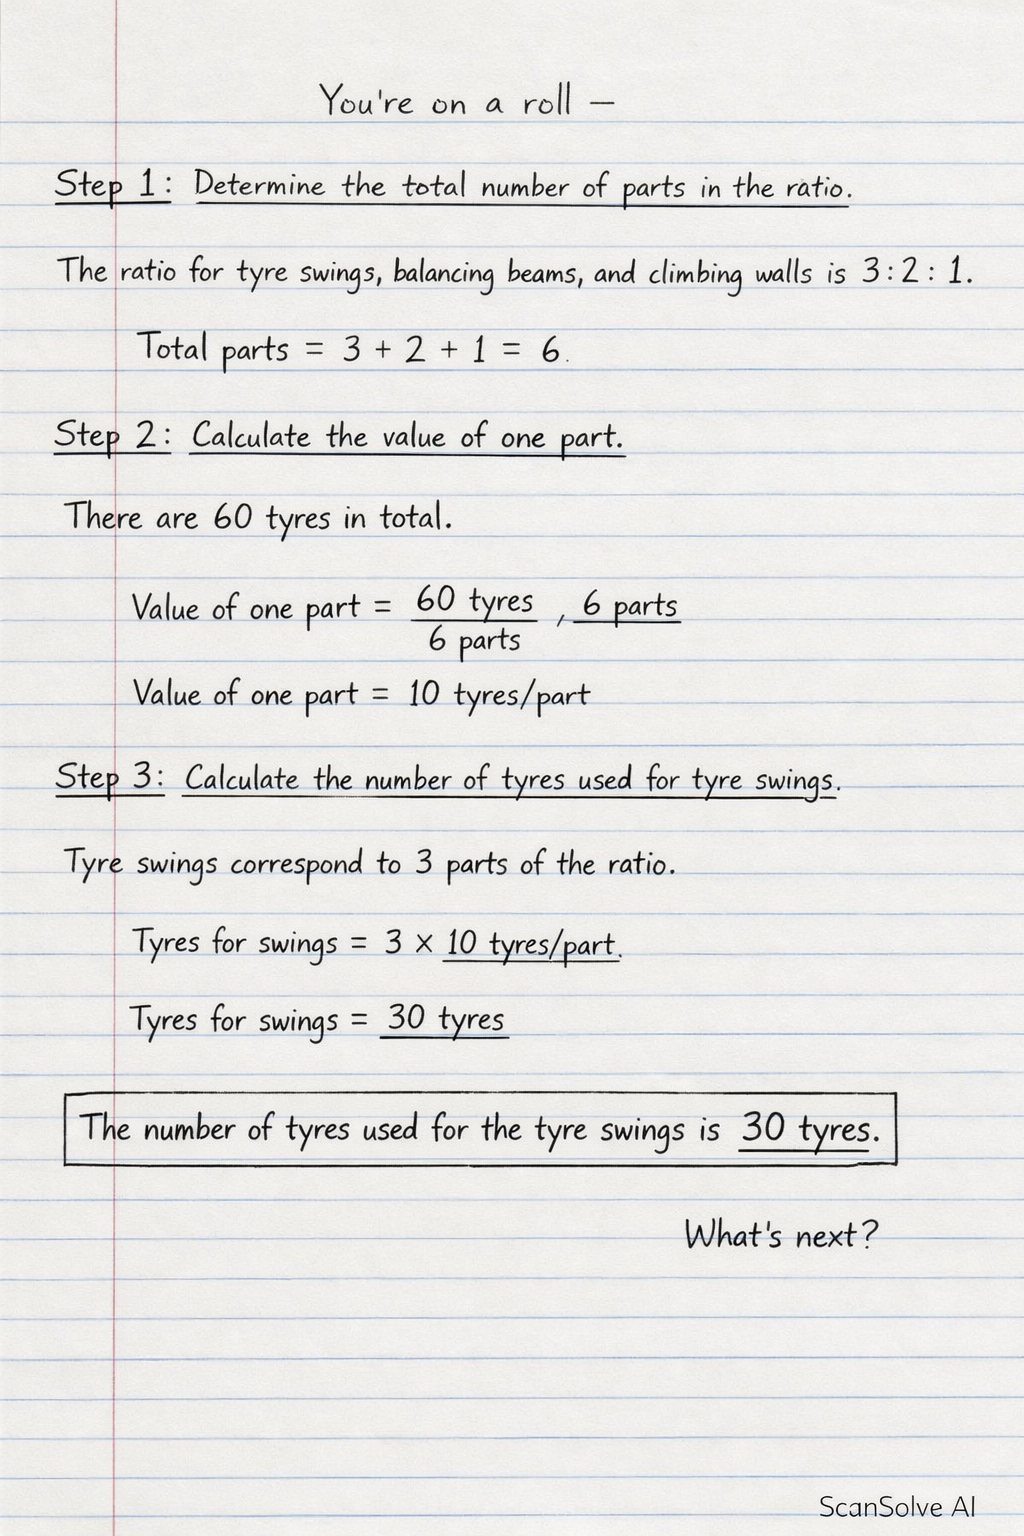 You're on a roll —
Step 1: Determine the total number of parts in the ratio.
The ratio for tyre swings, balancing beams, and climbing walls is 3:2:1.
Total parts = 3 + 2 + 1 = 6.
Step 2: Calculate the value of one part.
There are 60 tyres in total.
Value of one part = 60 tyres / 6 parts , 6 parts
Value of one part = 10 tyres/part
Step 3: Calculate the number of tyres used for tyre swings.
Tyre swings correspond to 3 parts of the ratio.
Tyres for swings = 3 × 10 tyres/part.
Tyres for swings = 30 tyres
The number of tyres used for the tyre swings is 30 tyres.
What's next?
ScanSolve AI